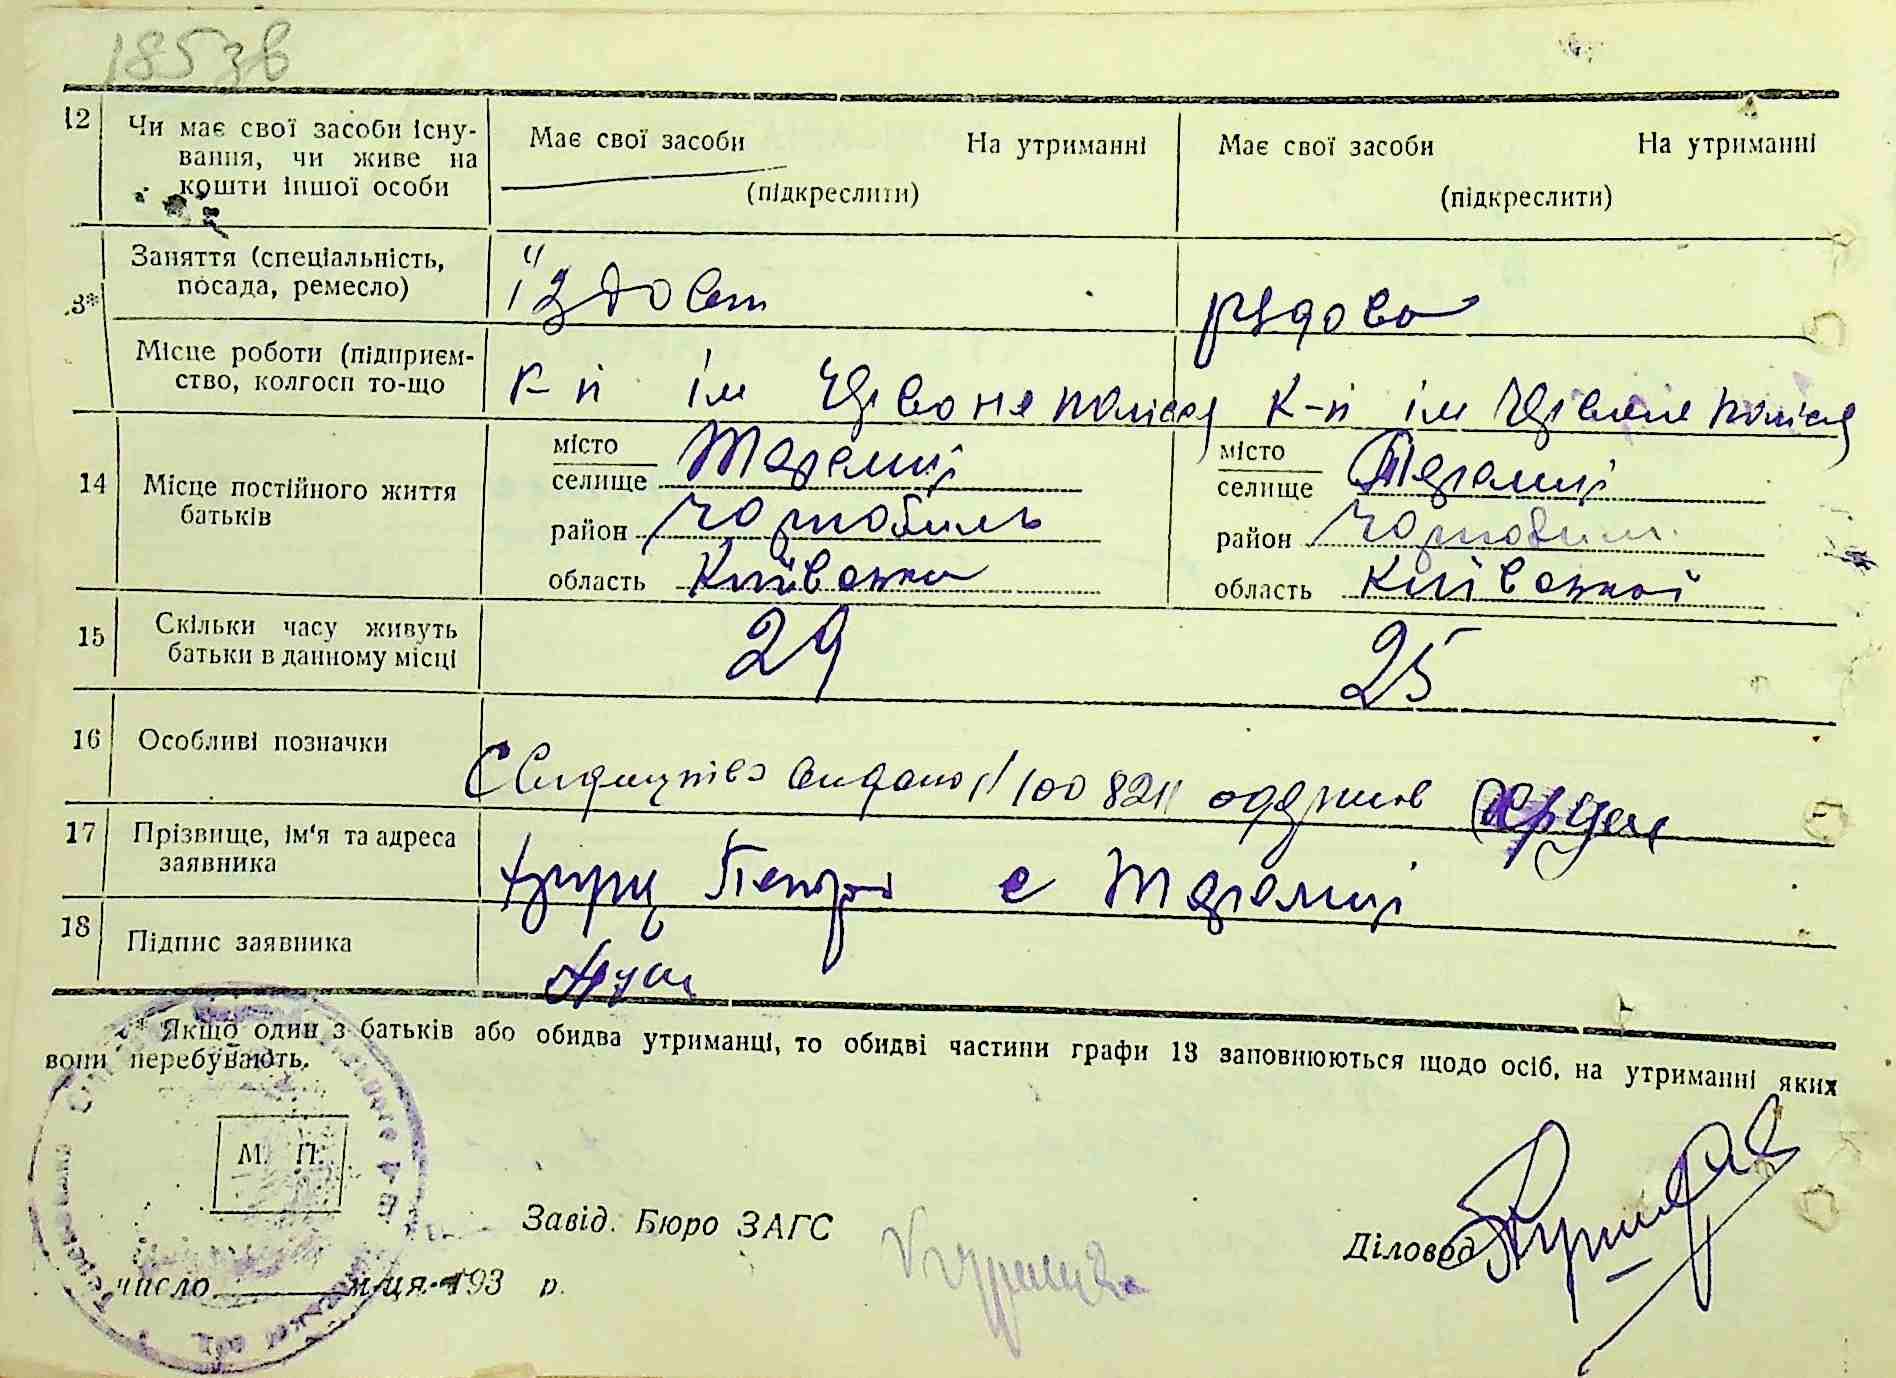 185зв
12 Чи має свої засоби існу-
вання, чи живе на
кошти іншої особи
Має свої засоби На утриманні
(підкреслити)
Має свої засоби На утриманні
(підкреслити)
3* Заняття (спеціальність,
посада, ремесло)
їздовий
рядова
Місце роботи (підприєм-
ство, колгосп то-що
к-п ім Червоне полісся
к-п ім Червоне полісся
14 Місце постійного життя
батьків
місто
селище Теремці
район Чорнобиль
область Київська
місто
селище Теремці
район Чорнобиль
область Київської
15 Скільки часу живуть
батьки в данному місці
29
25
16 Особливі позначки
видано 100821 одержив
17 Прізвище, ім'я та адреса
заявника
Петро с Теремці
18 Підпис заявника
* Якщо один з батьків або обидва утриманці, то обидві частини графи 13 заповнюються щодо осіб, на утриманні яких
вони перебувають.
М. П.
Завід. Бюро ЗАГС
Діловод
число м-ця 193 р.